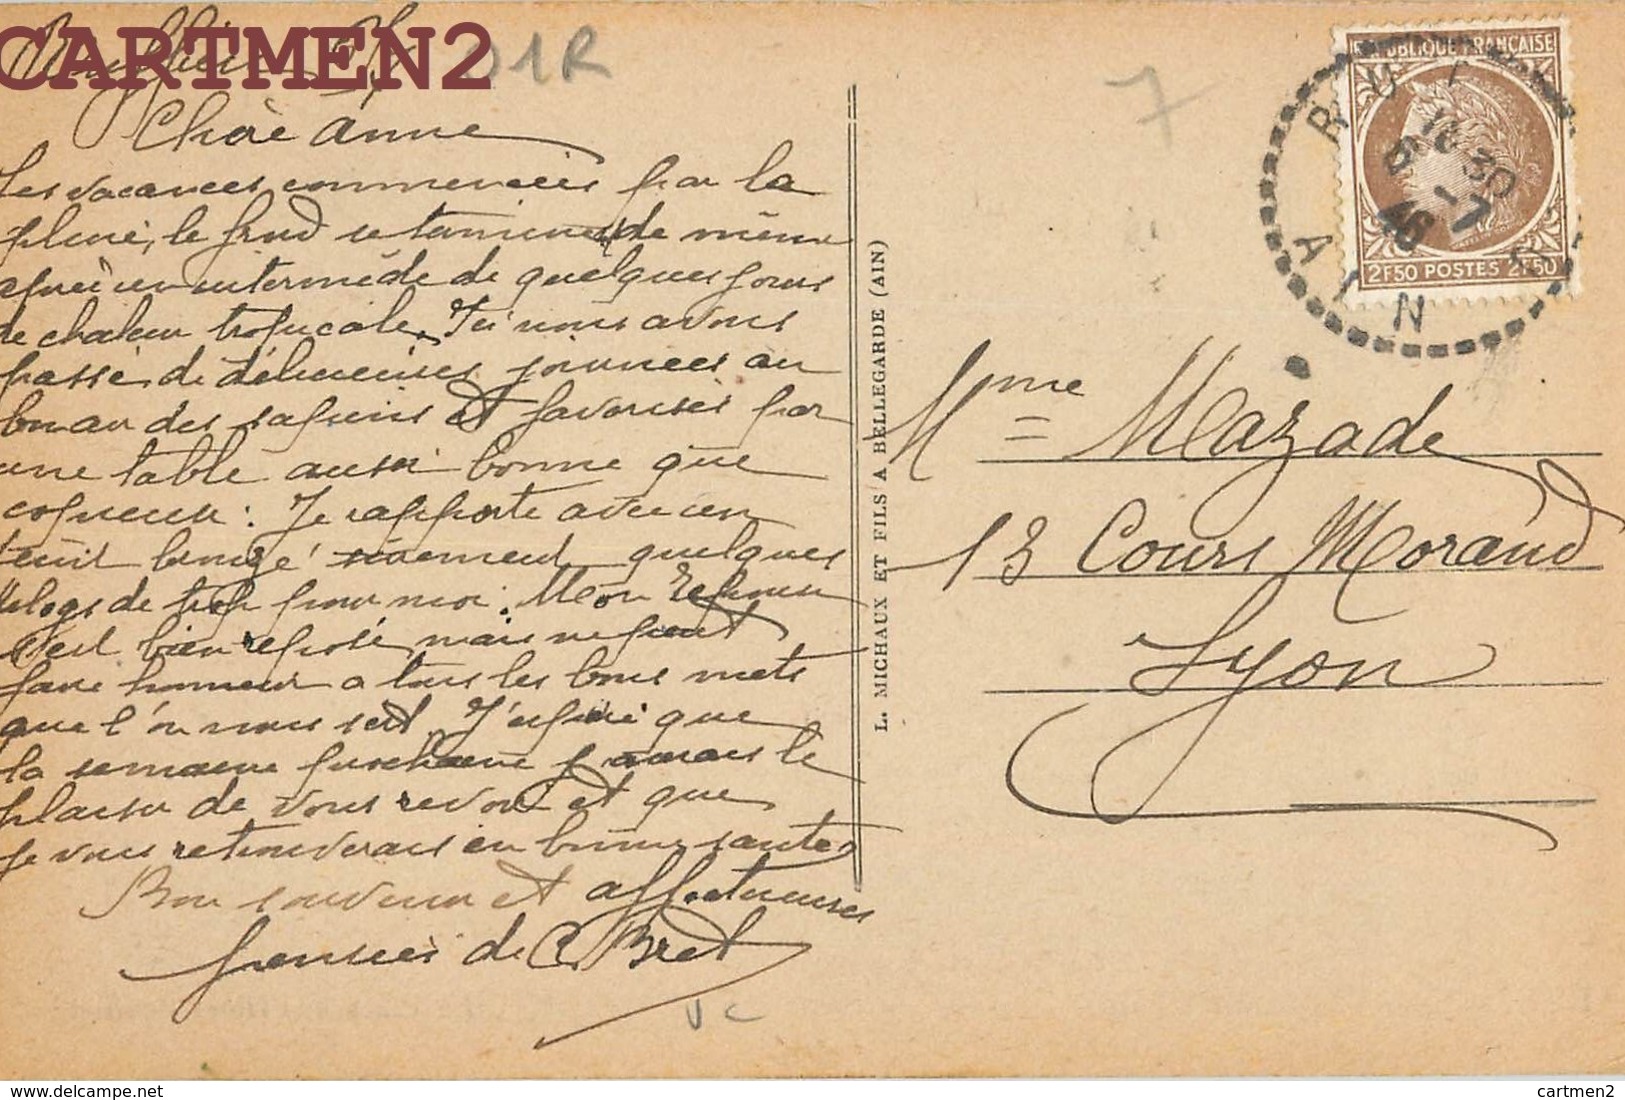 CARTMEN2 01R
Chère Anne
Les vacances commencées par la
pluie, le froid se terminent de même
après un intermède de quelques jours
de chaleur tropicale. Ici nous avons
passé de délicieuses journées au
bon air des sapins et favorisés par
une table aussi bonne que
copieuse. Je rapporte avec un
teint bronzé sûrement quelques
kilogs de trop pour moi. Mon
est bien reposé, mais ne peut
faire honneur à tous les bons mets
que l'on nous sert. J'espère que
la semaine prochaine j'aurais le
plaisir de vous revoir et que
je vous retrouverais en bonne santé
Bon souvenir et affectueuses
pensées de C. Bret
vc
L. MICHAUX ET FILS A BELLEGARDE (AIN)
7
RÉPUBLIQUE FRANÇAISE
2F50 POSTES 2F50
AIN
16 30
6 -7
46
Mme Mazade
13 Cours Morand
Lyon
cartmen2